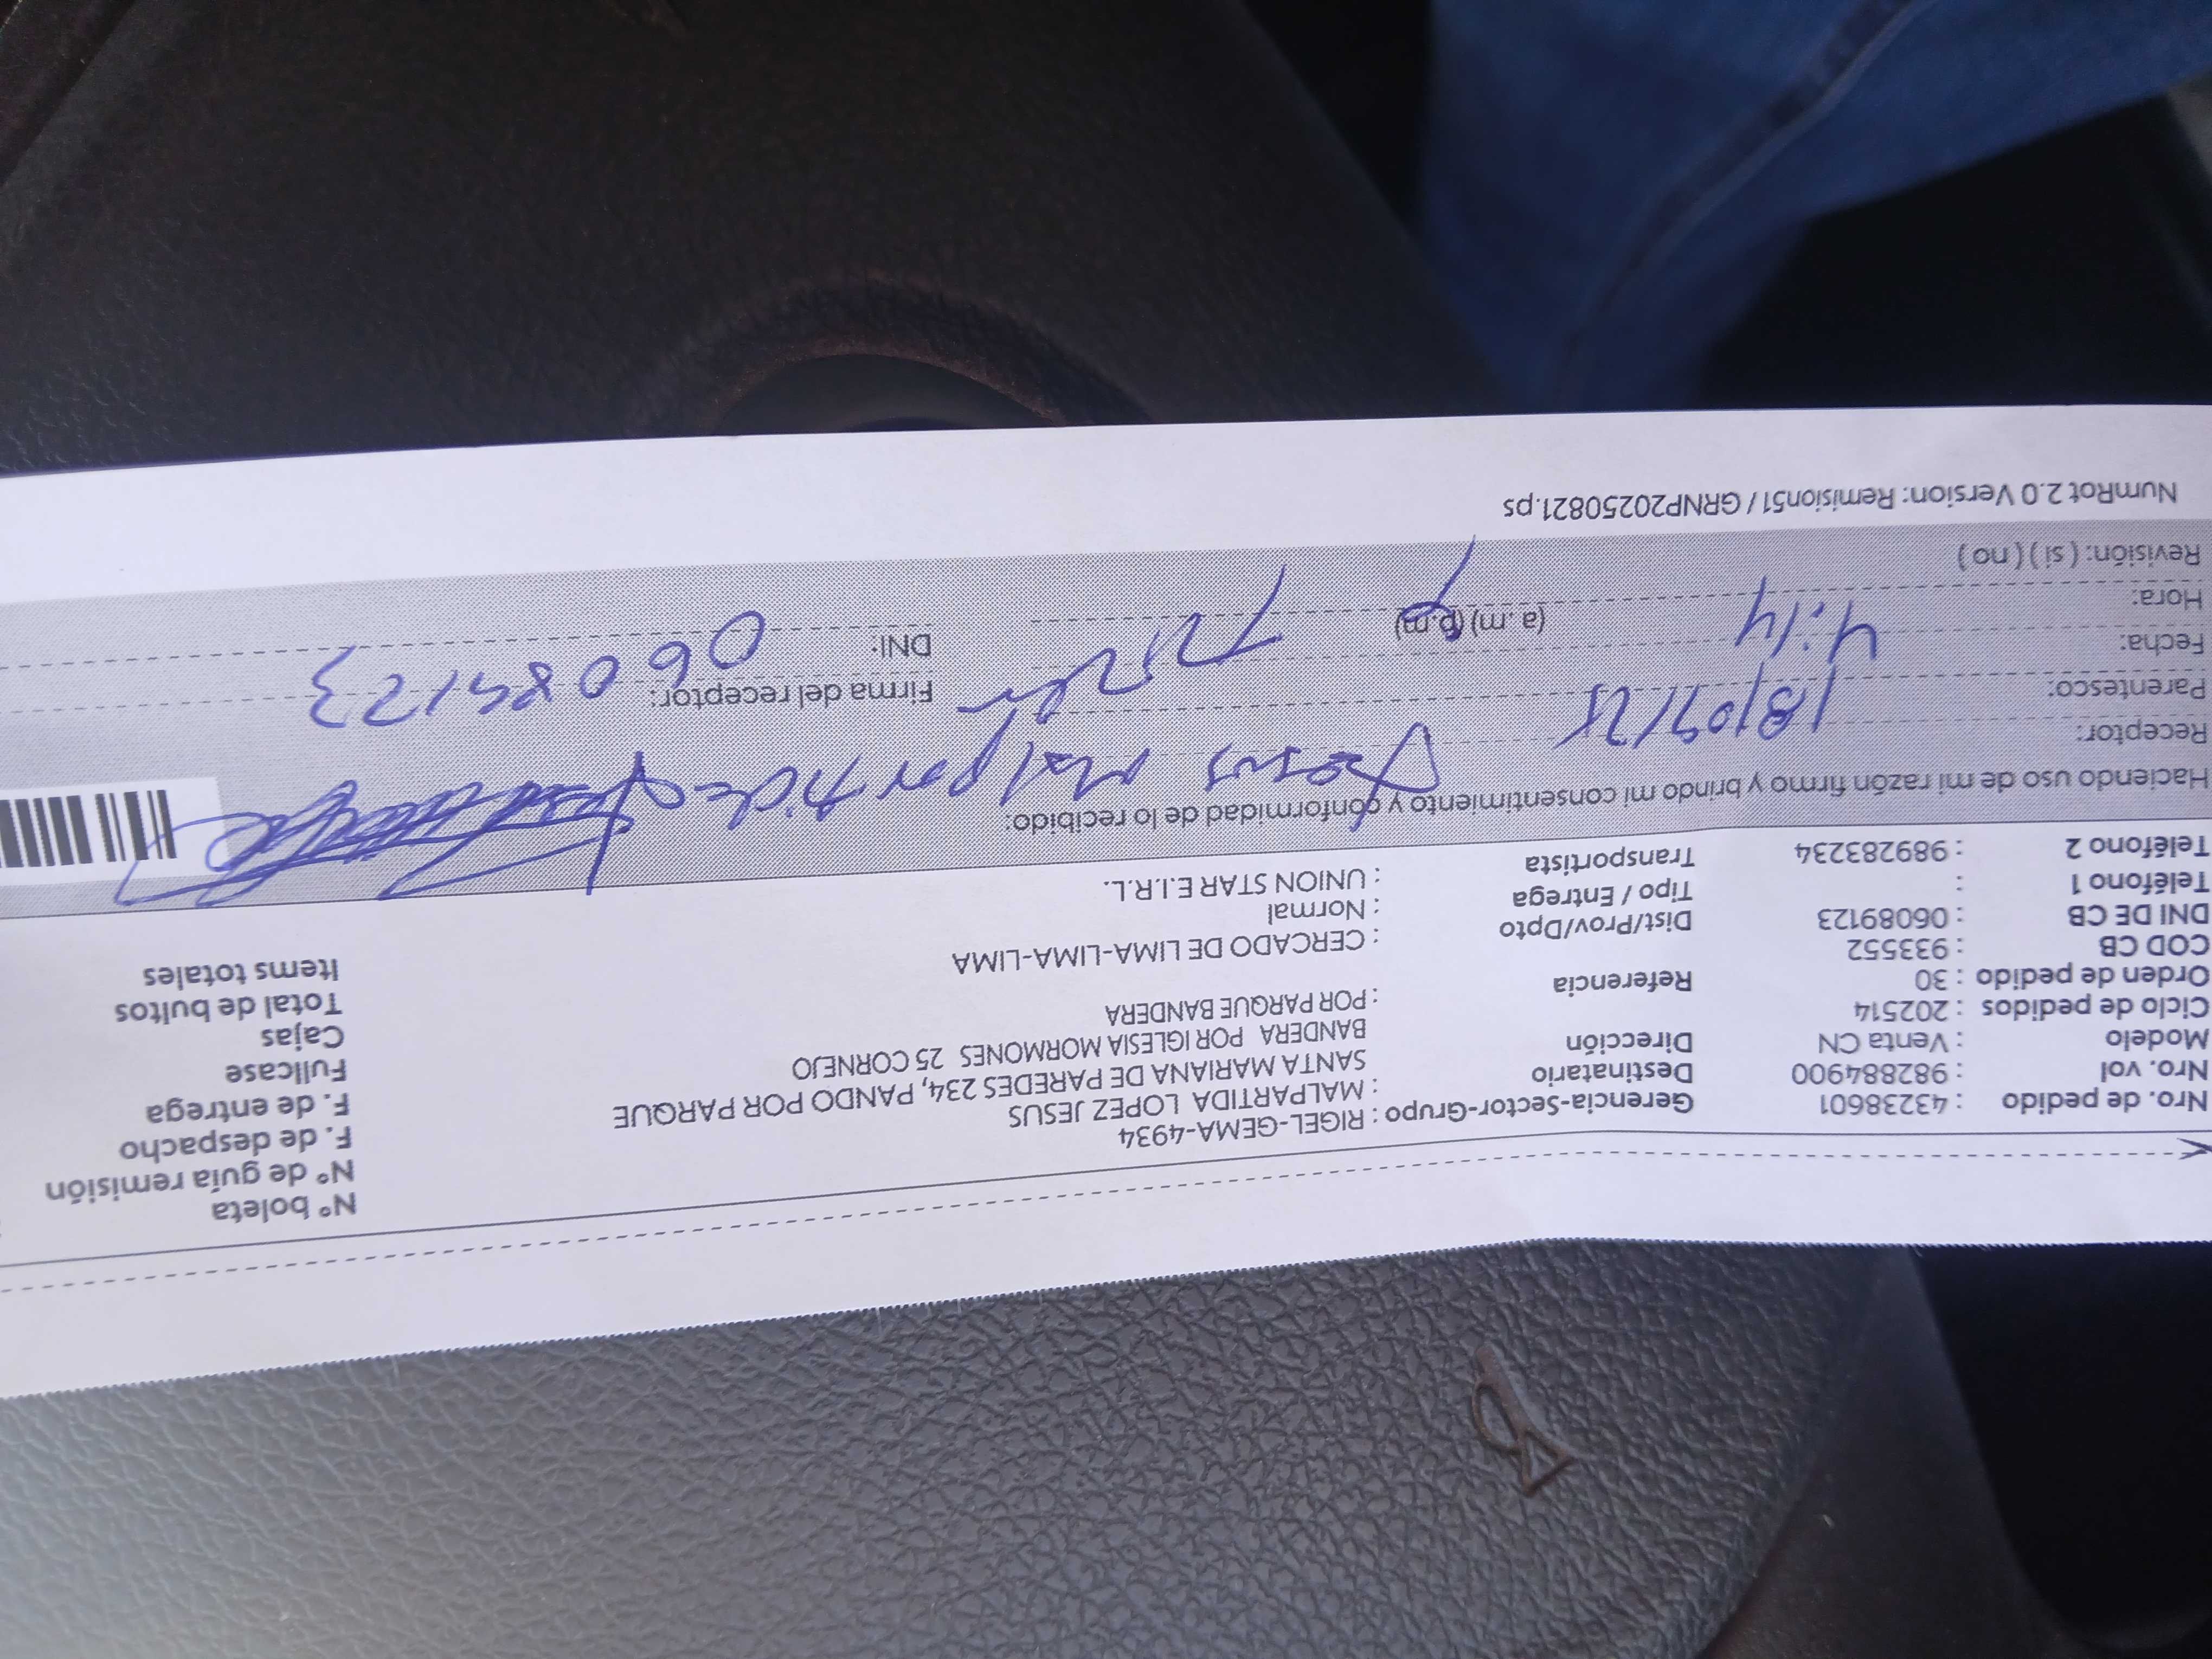 Nro. de pedido : 43238601 Gerencia-Sector-Grupo : RIGEL-GEMA-4934 N° boleta
Nro. vol : 982884900 Destinatario : MALPARTIDA LOPEZ JESUS N° de guía remisión
Modelo : Venta CN Dirección SANTA MARIANA DE PAREDES 234, PANDO POR PARQUE F. de despacho
Ciclo de pedidos : 202514 BANDERA POR IGLESIA MORMONES 25 CORNEJO F. de entrega
Orden de pedido : 30 Referencia : POR PARQUE BANDERA Fullcase
COD CB : 933552 Cajas
DNI DE CB : 06089123 Dist/Prov/Dpto : CERCADO DE LIMA-LIMA-LIMA Total de bultos
Teléfono 1 : Tipo / Entrega : Normal Items totales
Teléfono 2 : 989283234 Transportista : UNION STAR E.I.R.L.
Haciendo uso de mi razón firmo y brindo mi consentimiento y conformidad de lo recibido:
Receptor: Jesus Malpartida
Parentesco: Firma del receptor:
Fecha: 18/09/25 DNI: 06089123
Hora: 4:14 (a.m) (p.m)
Revisión: ( si ) ( no )
NumRot 2.0 Version: Remision51 / GRNP20250821.ps